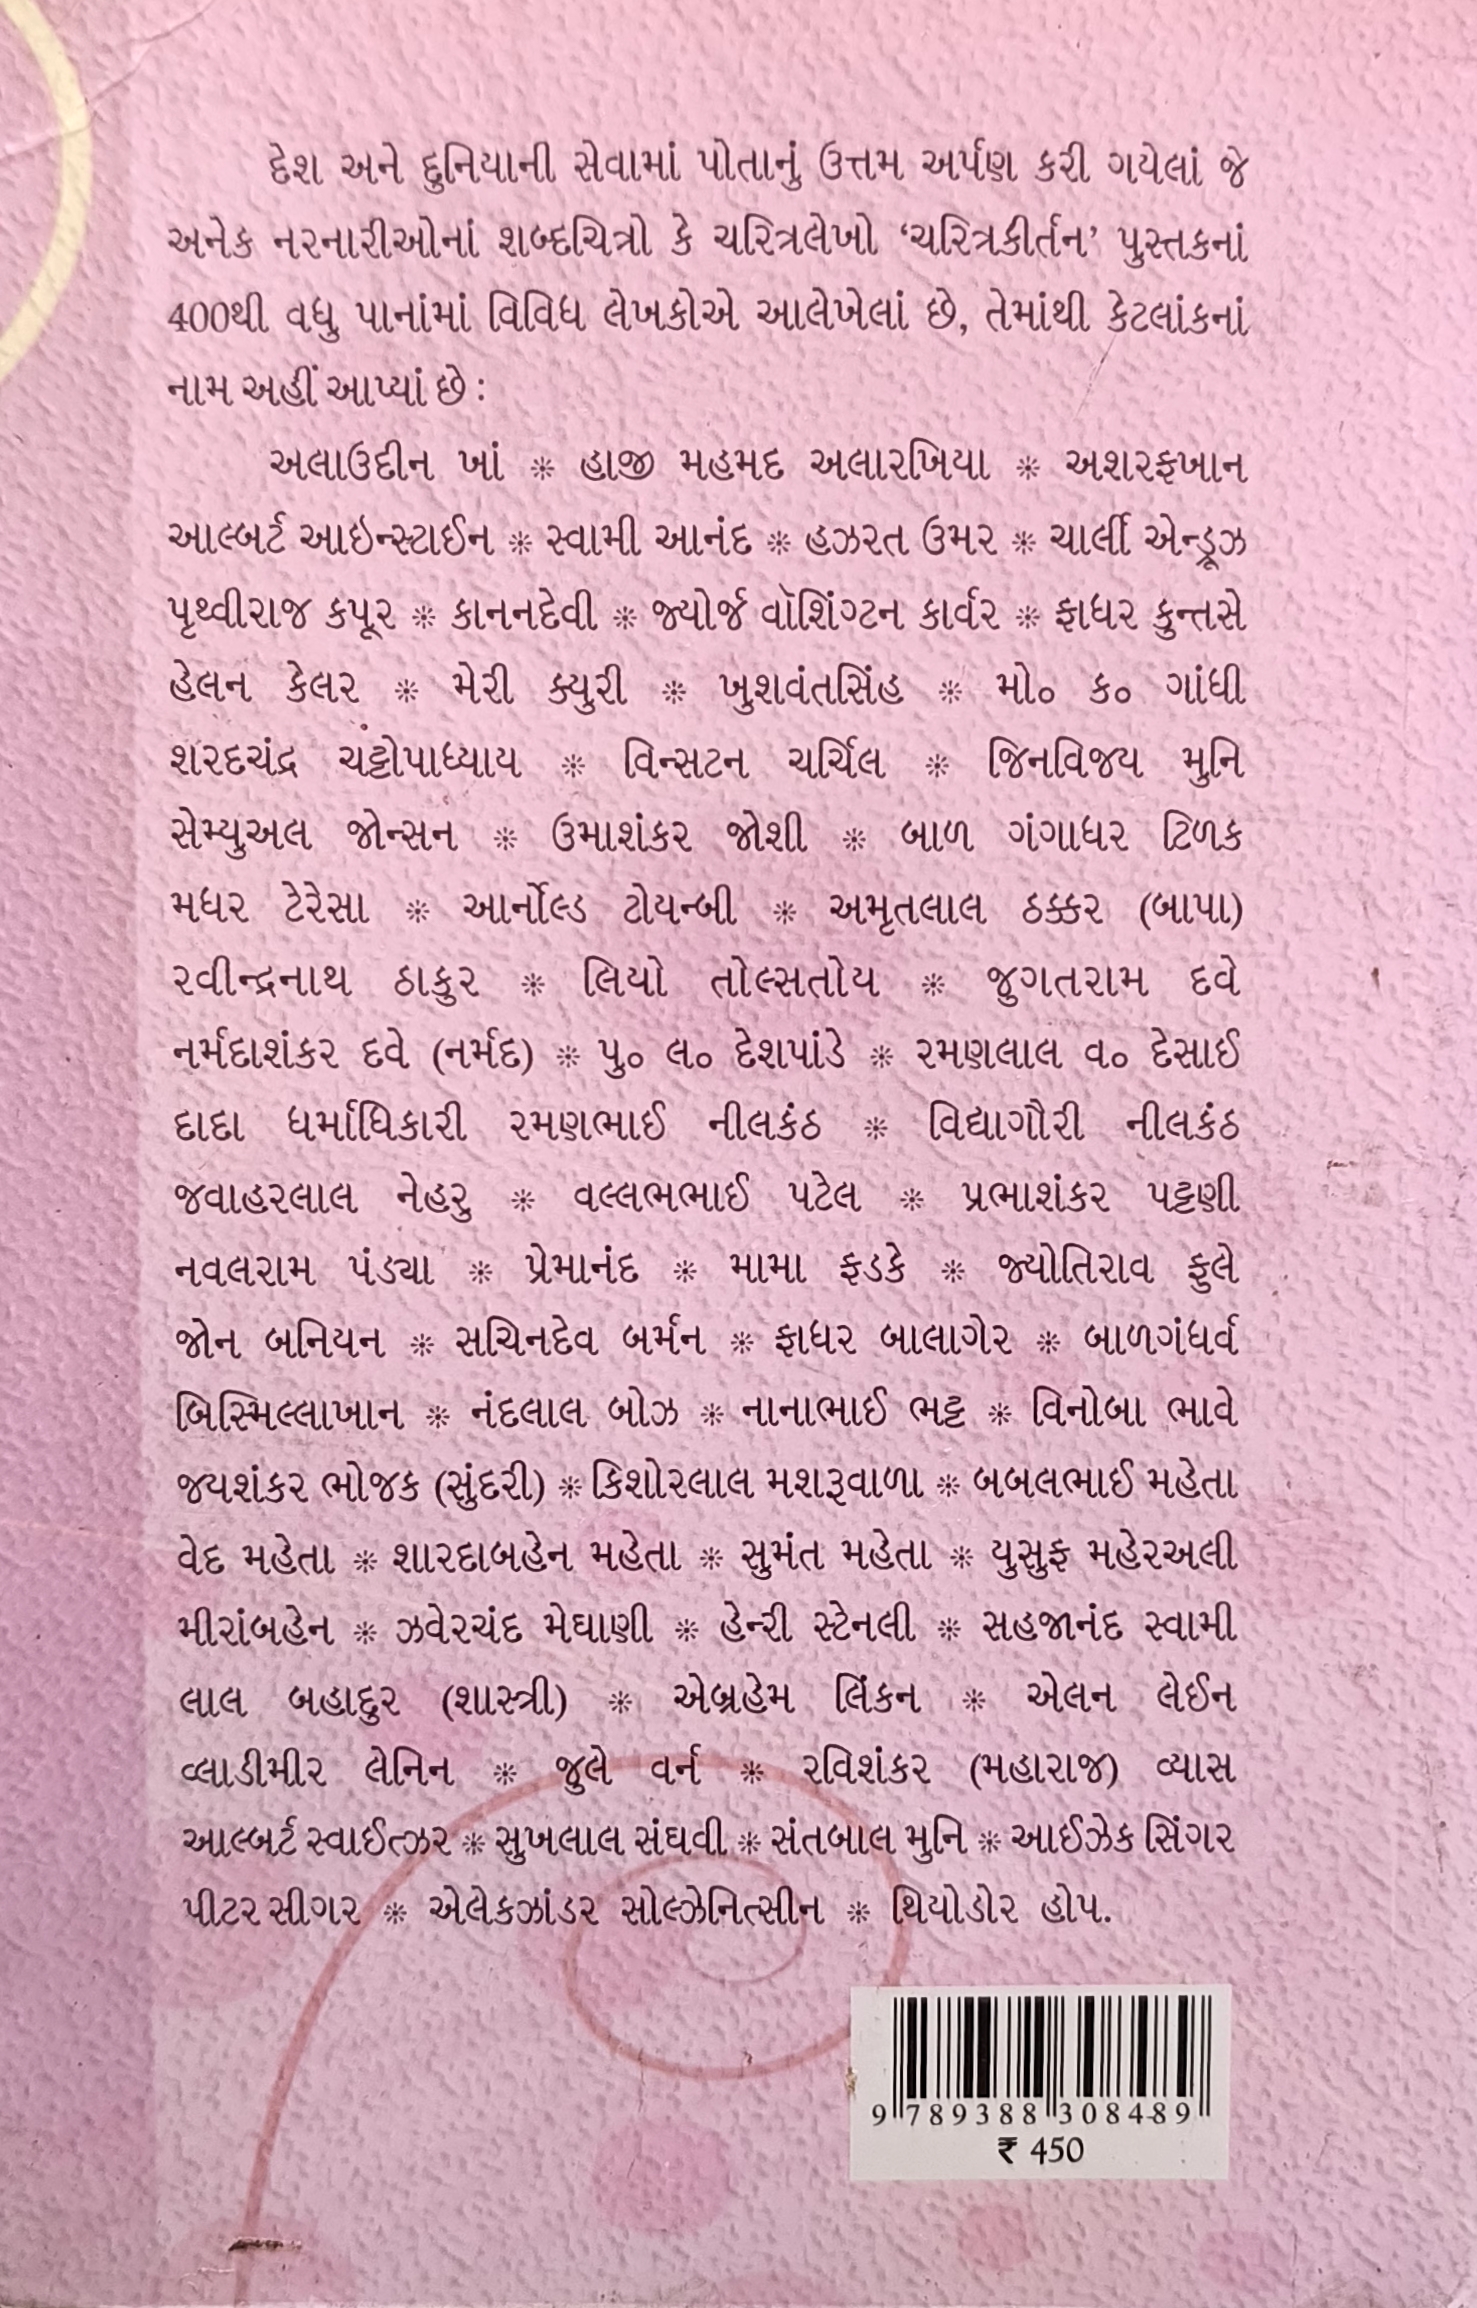 દેશ અને દુનિયાની સેવામાં પોતાનું ઉત્તમ અર્પણ કરી ગયેલાં જે
અનેક નરનારીઓનાં શબ્દચિત્રો કે ચરિત્રલેખો ‘ચરિત્રકીર્તન’ પુસ્તકનાં
400થી વધુ પાનાંમાં વિવિધ લેખકોએ આલેખેલાં છે, તેમાંથી કેટલાંકનાં
નામ અહીં આપ્યાં છે :
અલાઉદીન ખાં ❋ હાજી મહમદ અલારખિયા ❋ અશરફખાન
આલ્બર્ટ આઇન્સ્ટાઈન ❋ સ્વામી આનંદ ❋ હઝરત ઉમર ❋ ચાર્લી એન્ડ્રૂઝ
પૃથ્વીરાજ કપૂર ❋ કાનનદેવી ❋ જ્યોર્જ વૉશિંગ્ટન કાર્વર ❋ ફાધર કુન્તસે
હેલન કેલર ❋ મેરી ક્યુરી ❋ ખુશવંતસિંહ ❋ મો૦ ક૦ ગાંધી
શરદચંદ્ર ચટ્ટોપાધ્યાય ❋ વિન્સટન ચર્ચિલ ❋ જિનવિજય મુનિ
સેમ્યુઅલ જોન્સન ❋ ઉમાશંકર જોશી ❋ બાળ ગંગાધર ટિળક
મધર ટેરેસા ❋ આર્નોલ્ડ ટોયન્બી ❋ અમૃતલાલ ઠક્કર (બાપા)
રવીન્દ્રનાથ ઠાકુર ❋ લિયો તોલ્સતોય ❋ જુગતરામ દવે
નર્મદાશંકર દવે (નર્મદ) ❋ પુ૦ લ૦ દેશપાંડે ❋ રમણલાલ વ૦ દેસાઈ
દાદા ધર્માધિકારી રમણભાઈ નીલકંઠ ❋ વિદ્યાગૌરી નીલકંઠ
જવાહરલાલ નેહરુ ❋ વલ્લભભાઈ પટેલ ❋ પ્રભાશંકર પટ્ટણી
નવલરામ પંડ્યા ❋ પ્રેમાનંદ ❋ મામા ફડકે ❋ જ્યોતિરાવ ફુલે
જોન બનિયન ❋ સચિનદેવ બર્મન ❋ ફાધર બાલાગેર ❋ બાળગંધર્વ
બિસ્મિલ્લાખાન ❋ નંદલાલ બોઝ ❋ નાનાભાઈ ભટ્ટ ❋ વિનોબા ભાવે
જયશંકર ભોજક (સુંદરી) ❋ કિશોરલાલ મશરૂવાળા ❋ બબલભાઈ મહેતા
વેદ મહેતા ❋ શારદાબહેન મહેતા ❋ સુમંત મહેતા ❋ યુસુફ મહેરઅલી
મીરાંબહેન ❋ ઝવેરચંદ મેઘાણી ❋ હેન્રી સ્ટેનલી ❋ સહજાનંદ સ્વામી
લાલ બહાદુર (શાસ્ત્રી) ❋ એબ્રહેમ લિંકન ❋ એલન લેઈન
વ્લાડીમીર લેનિન ❋ જુલે વર્ન ❋ રવિશંકર (મહારાજ) વ્યાસ
આલ્બર્ટ સ્વાઈત્ઝર ❋ સુખલાલ સંઘવી ❋ સંતબાલ મુનિ ❋ આઈઝેક સિંગર
પીટર સીગર ❋ એલેકઝાંડર સોલ્ઝેનિત્સીન ❋ થિયોડોર હોપ.
9 789388 308489
₹ 450